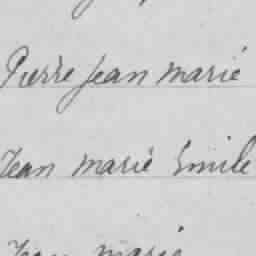 Pierre Jean Marie
Jean Marie Emile
Jean Marie